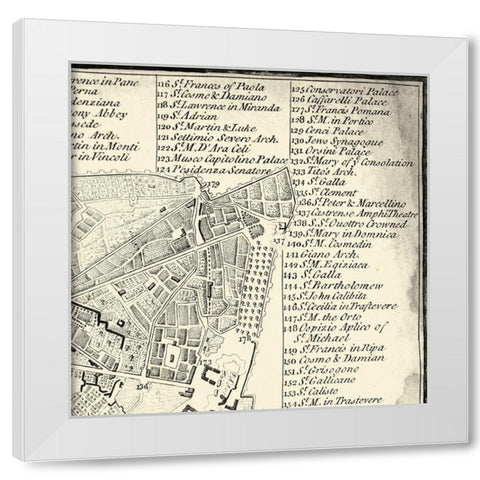 rence in Pane
Perna
denziana
ony Abbey
ssede
no Arch.
tin in Monti
r in Vincoli
116 St. Frances of Paola
117 St. Cosme & Damiano
118 St. Lawrence in Miranda
119 St. Adrian
120 St. Martin & Luke
121 Settimio Severo Arch.
122 St. M. D'Ara Celi
123 Museo Capitolino Palace
124 Residenza Senatore
125 Conservatori Palace
126 Caffarelli Palace
127 St. Francis Romana
128 St. M. in Portico
129 Cenci Palace
130 Jews Synagogue
131 Orsini Palace
132 St. Mary of ye. Consolation
133 Tito's Arch.
134 St. Galla
135 St. Clement
136 St. Peter & Marcellino
137 Castrense AmphiTheatre
138 S.S. Quottro Crowned
139 St. Mary in Domnica
140 St. M. Cosmedin
141 Giano Arch.
142 St. M. Egiziaca
143 St. Galla
144 St. Bartholomew
145 St. John Calibita
146 St. Cecilia in Trastevere
147 St. M. the Orto
148 Ospizio Aplico of
St. Michael
149 St. Francis in Ripa
150 Cosmo & Damian
151 St. Grisogono
152 St. Gallicano
153 St. Calisto
154 St. M. in Trastevere
179
137
178
136